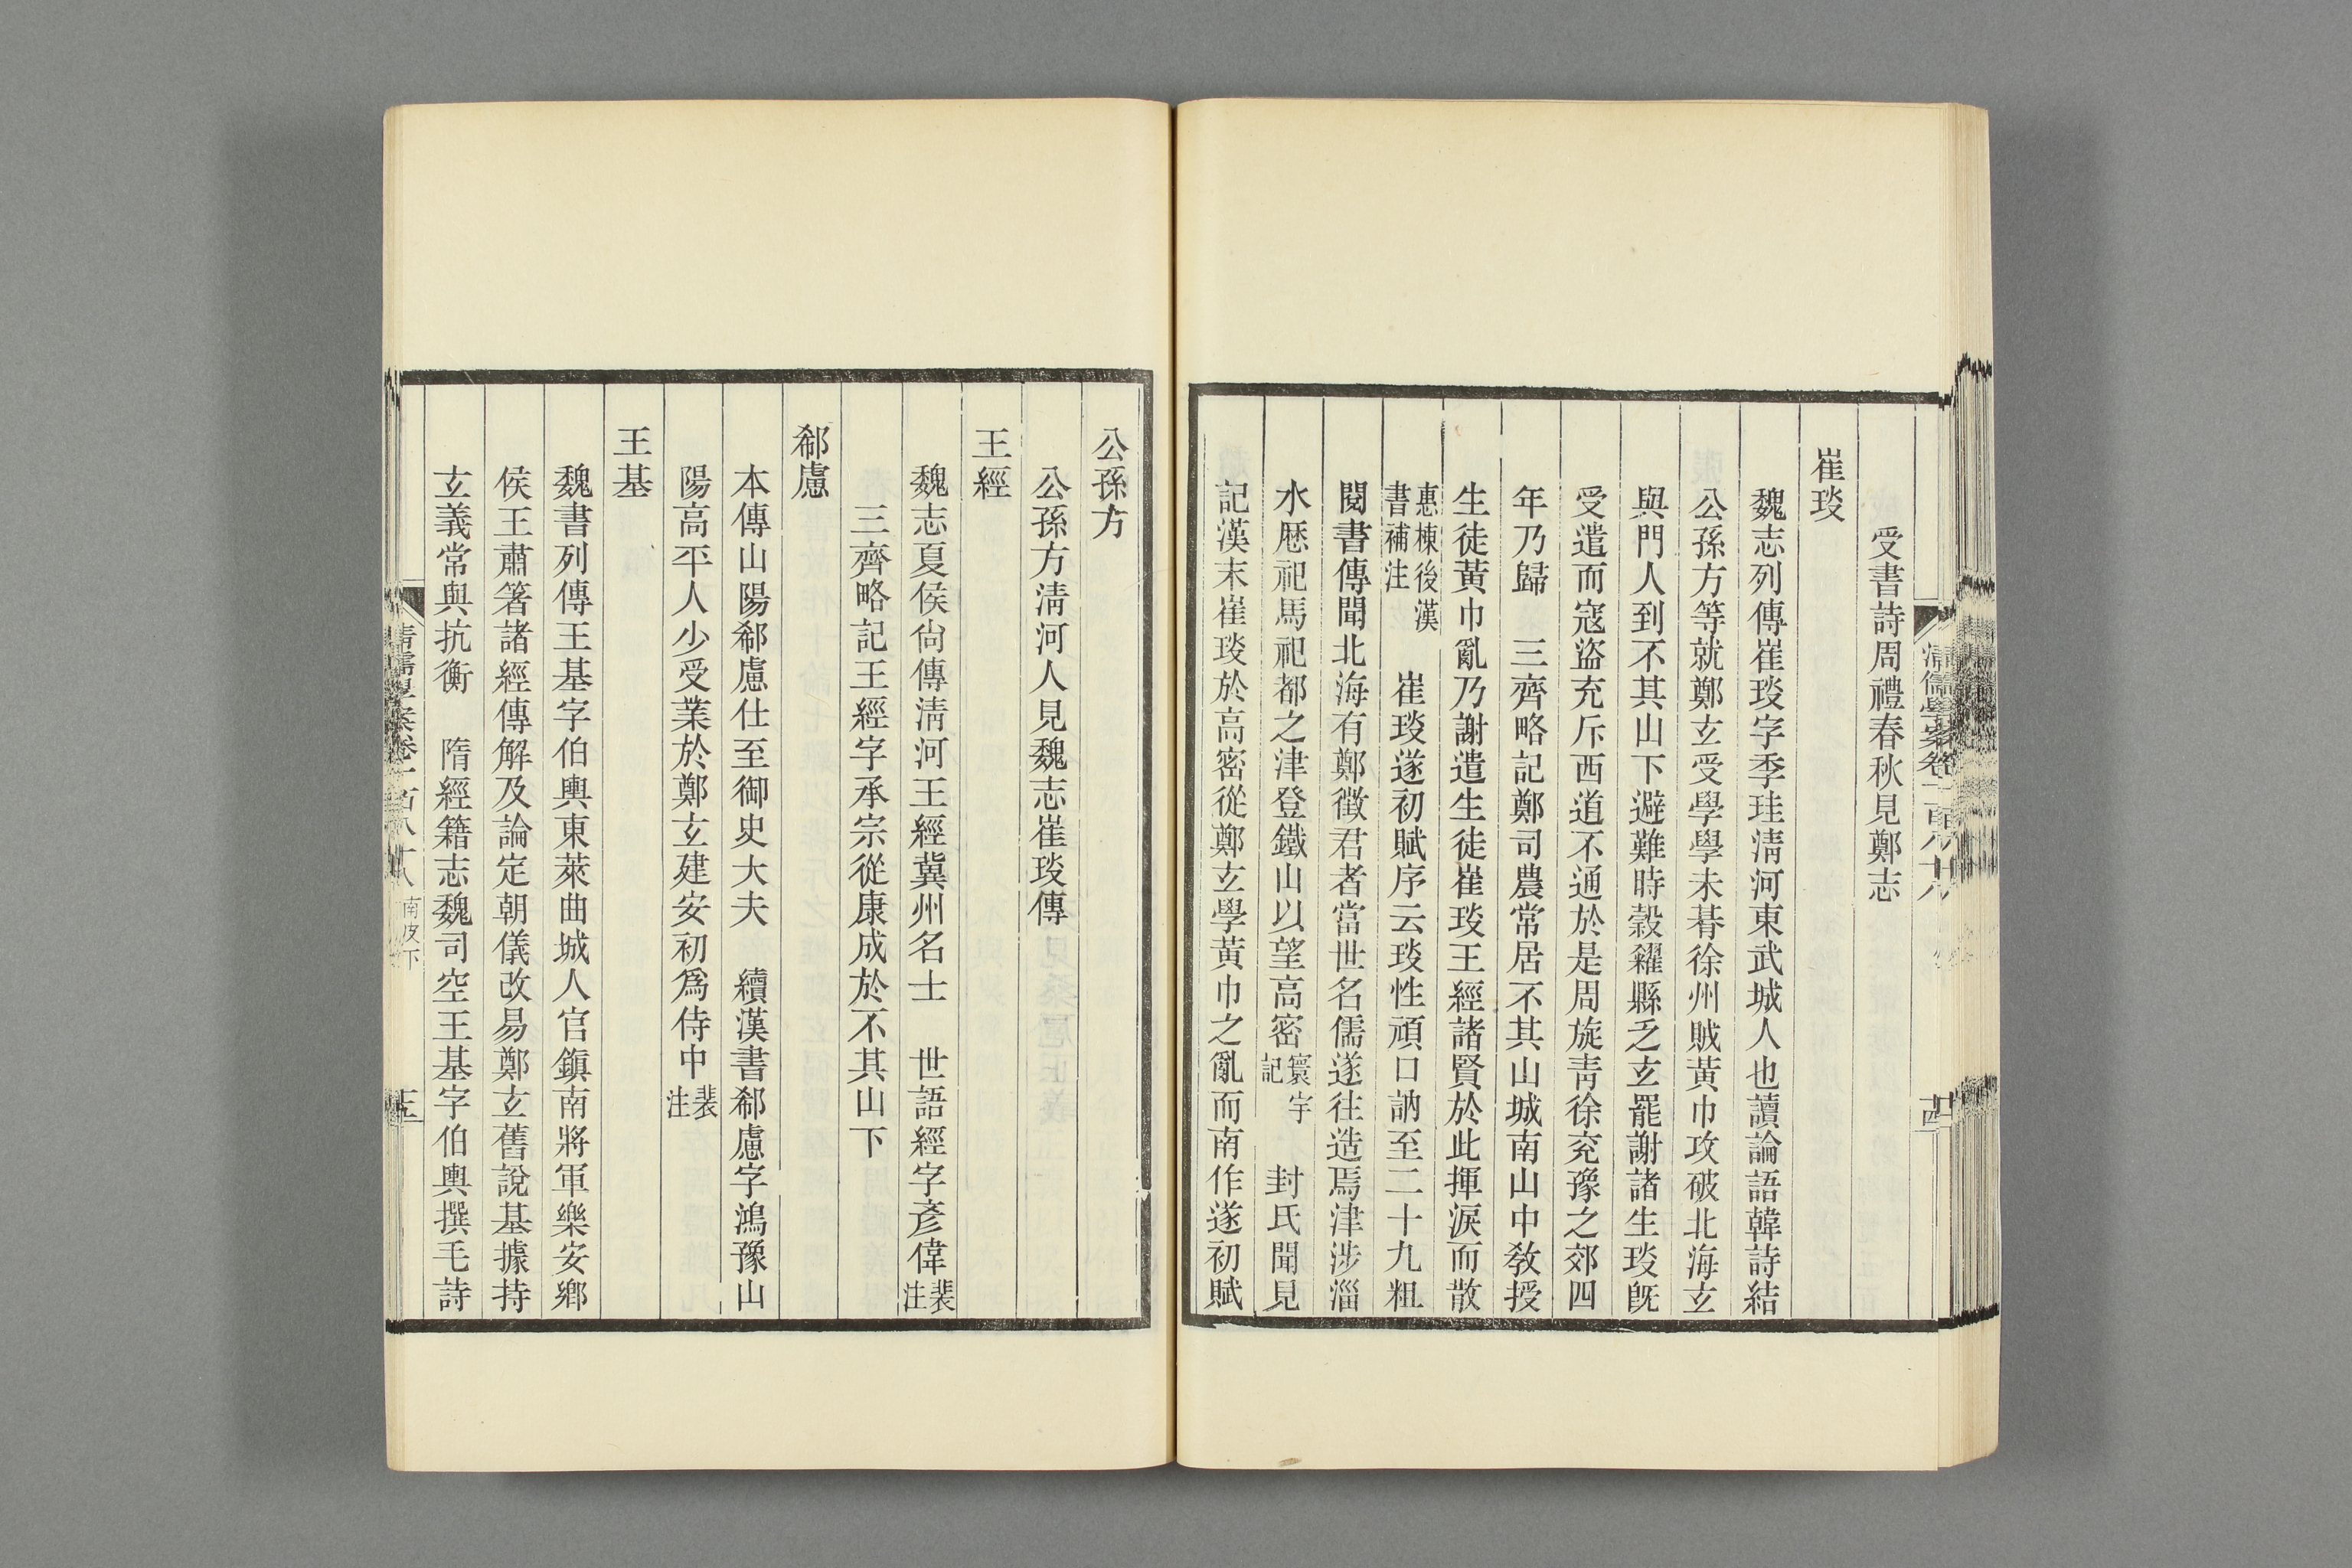 受書詩周禮春秋見鄭志
崔琰
魏志列傳崔琰字季珪淸河東武城人也讀論語韓詩結
公孫方等就鄭玄受學學未朞徐州賊黃巾攻破北海玄
與門人到不其山下避難時穀糴縣乏玄罷謝諸生琰旣
受遣而寇盜充斥西道不通於是周旋靑徐兗豫之郊四
年乃歸　三齊略記鄭司農常居不其山城南山中敎授
生徒黃巾亂乃謝遣生徒崔琰王經諸賢於此揮淚而散
惠棟後漢書補注　崔琰遂初賦序云琰性頑口訥至二十九粗
閱書傳聞北海有鄭徵君者當世名儒遂往造焉津涉淄
水歷祀馬祀都之津登鐵山以望高密寰宇記　封氏聞見
記漢末崔琰於高密從鄭玄學黃巾之亂而南作遂初賦
公孫方
公孫方淸河人見魏志崔琰傳
王經
魏志夏侯尙傳淸河王經冀州名士　世語經字彥偉裴注
三齊略記王經字承宗從康成於不其山下
郗慮
本傳山陽郗慮仕至御史大夫　續漢書郗慮字鴻豫山
陽高平人少受業於鄭玄建安初爲侍中裴注
王基
魏書列傳王基字伯輿東萊曲城人官鎭南將軍樂安鄕
侯王肅箸諸經傳解及論定朝儀改易鄭玄舊說基據持
玄義常與抗衡　隋經籍志魏司空王基字伯輿撰毛詩